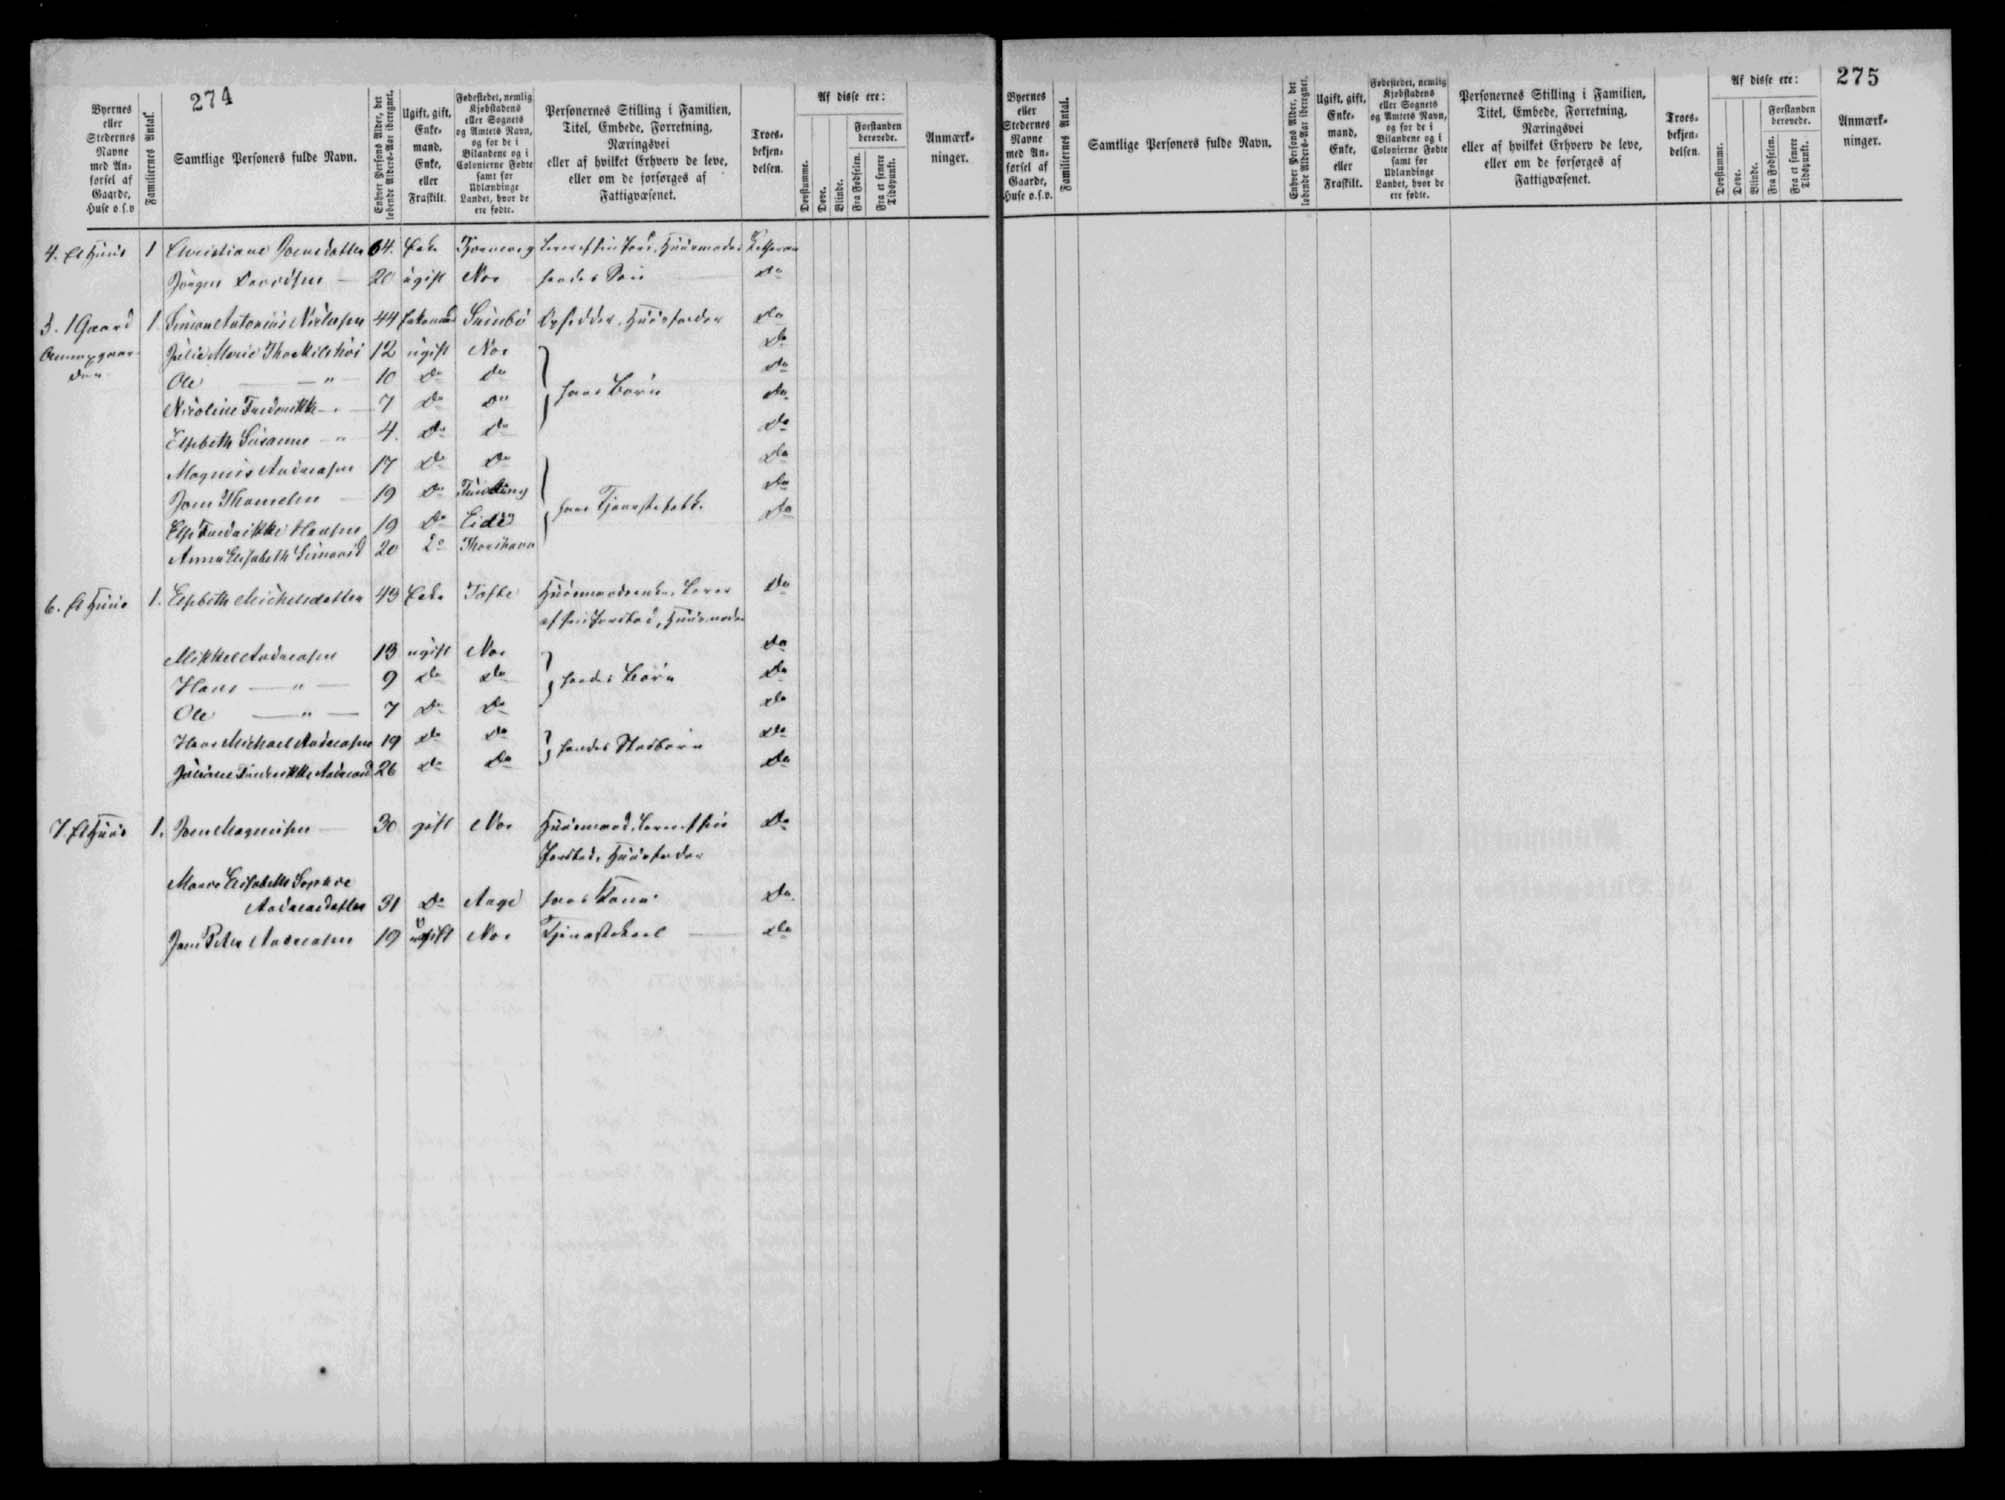 274
Byernes eller Stedernes Navne med An- førsel af Gaarde, Huse o.s.v
Familiernes Antal.
Samtlige Personers fulde Navn.
Enhver Persons Alder, det løbende Alders-Aar iberegnet.
Ugift, gift, Enke- mand, Enke, eller Fraskilt.
Fødestedet, nemlig Kjøbstadens eller Sognets og Amtets Navn, og for de i Bilandene og i Colonierne Fødte samt for Udlændinge Landet, hvor de ere fødte.
Personernes Stilling i Familien, Titel, Embede, Forretning, Næringsvei eller af hvilket Erhverv de leve, eller om de forsørges af Fattigvæsenet.
Troes- bekjen- delsen.
Af disse ere:
Døvstumme.
Døve.
Blinde.
Forstanden berøvede.
Fra Fødselen.
Fra et senere Tidspunkt.
Anmærk- ninger.
4. Et Huus 1 Christiane Joensdatter 64. Enke Tjørnevig Lever af sin Jord, Huusmoder Luthersk
Jørgen 20 ugift Nos hendes Søn Do
5. 1 Gaard 1 Simon Antonius Nielsen 44 Enkemand Sumbø Opsidder, Huusfader Do
Julie Marie 12 ugift Nos Do
Ole — " — 10 Do Do hans Børn Do
Nicoline Frederikke — " — 7 Do Do Do
Elspbeth Susanne — " 4. Do Do Do
Magnus Andreasen 17 Do Do Do
Joen Thomsen 19 Do hans Tjenestefolk. Do
Else Fredrikke Hansen 19 Do Eide Do
Anna Elisabeth 20 Do Thorshavn
6. Et Huus 1. Elspbeth Michelsdatter 43 Enke Tofte Huusmandsenke, Lever Do
af sin Jordlod, Huusmoder
Mikkel Andreasen 13 ugift Nos Do
Hans — " — 9 Do Do hendes Børn Do
Ole — " — 7 Do Do Do
Hans Michael Andreasen 19 Do Do hendes Stedbørn Do
Juliane Frederikke 26 Do Do Do
7 Et Huus 1. Joen Magnusen 30 gift Nos Huusmand, Lever af sin Do
Jordlod, Huusfader
Maren Elisabeth Sophie
Andreasdatter 31 Do hans Kone Do
Jens Peter Andreasen 19 ugift Nos Tjenestekarl Do
275
Byernes eller Stedernes Navne med An- førsel af Gaarde, Huse o.s.v.
Familiernes Antal.
Samtlige Personers fulde Navn.
Enhver Persons Alder, det løbende Alders-Aar iberegnet.
Ugift, gift, Enke- mand, Enke, eller Fraskilt.
Fødestedet, nemlig Kjøbstadens eller Sognets og Amtets Navn, og for de i Bilandene og i Colonierne Fødte samt for Udlændinge Landet, hvor de ere fødte.
Personernes Stilling i Familien, Titel, Embede, Forretning, Næringsvei eller af hvilket Erhverv de leve, eller om de forsørges af Fattigvæsenet.
Troes- bekjen- delsen.
Af disse ere:
Døvstumme.
Døve.
Blinde.
Forstanden berøvede.
Fra Fødselen.
Fra et senere Tidspunkt.
Anmærk- ninger.